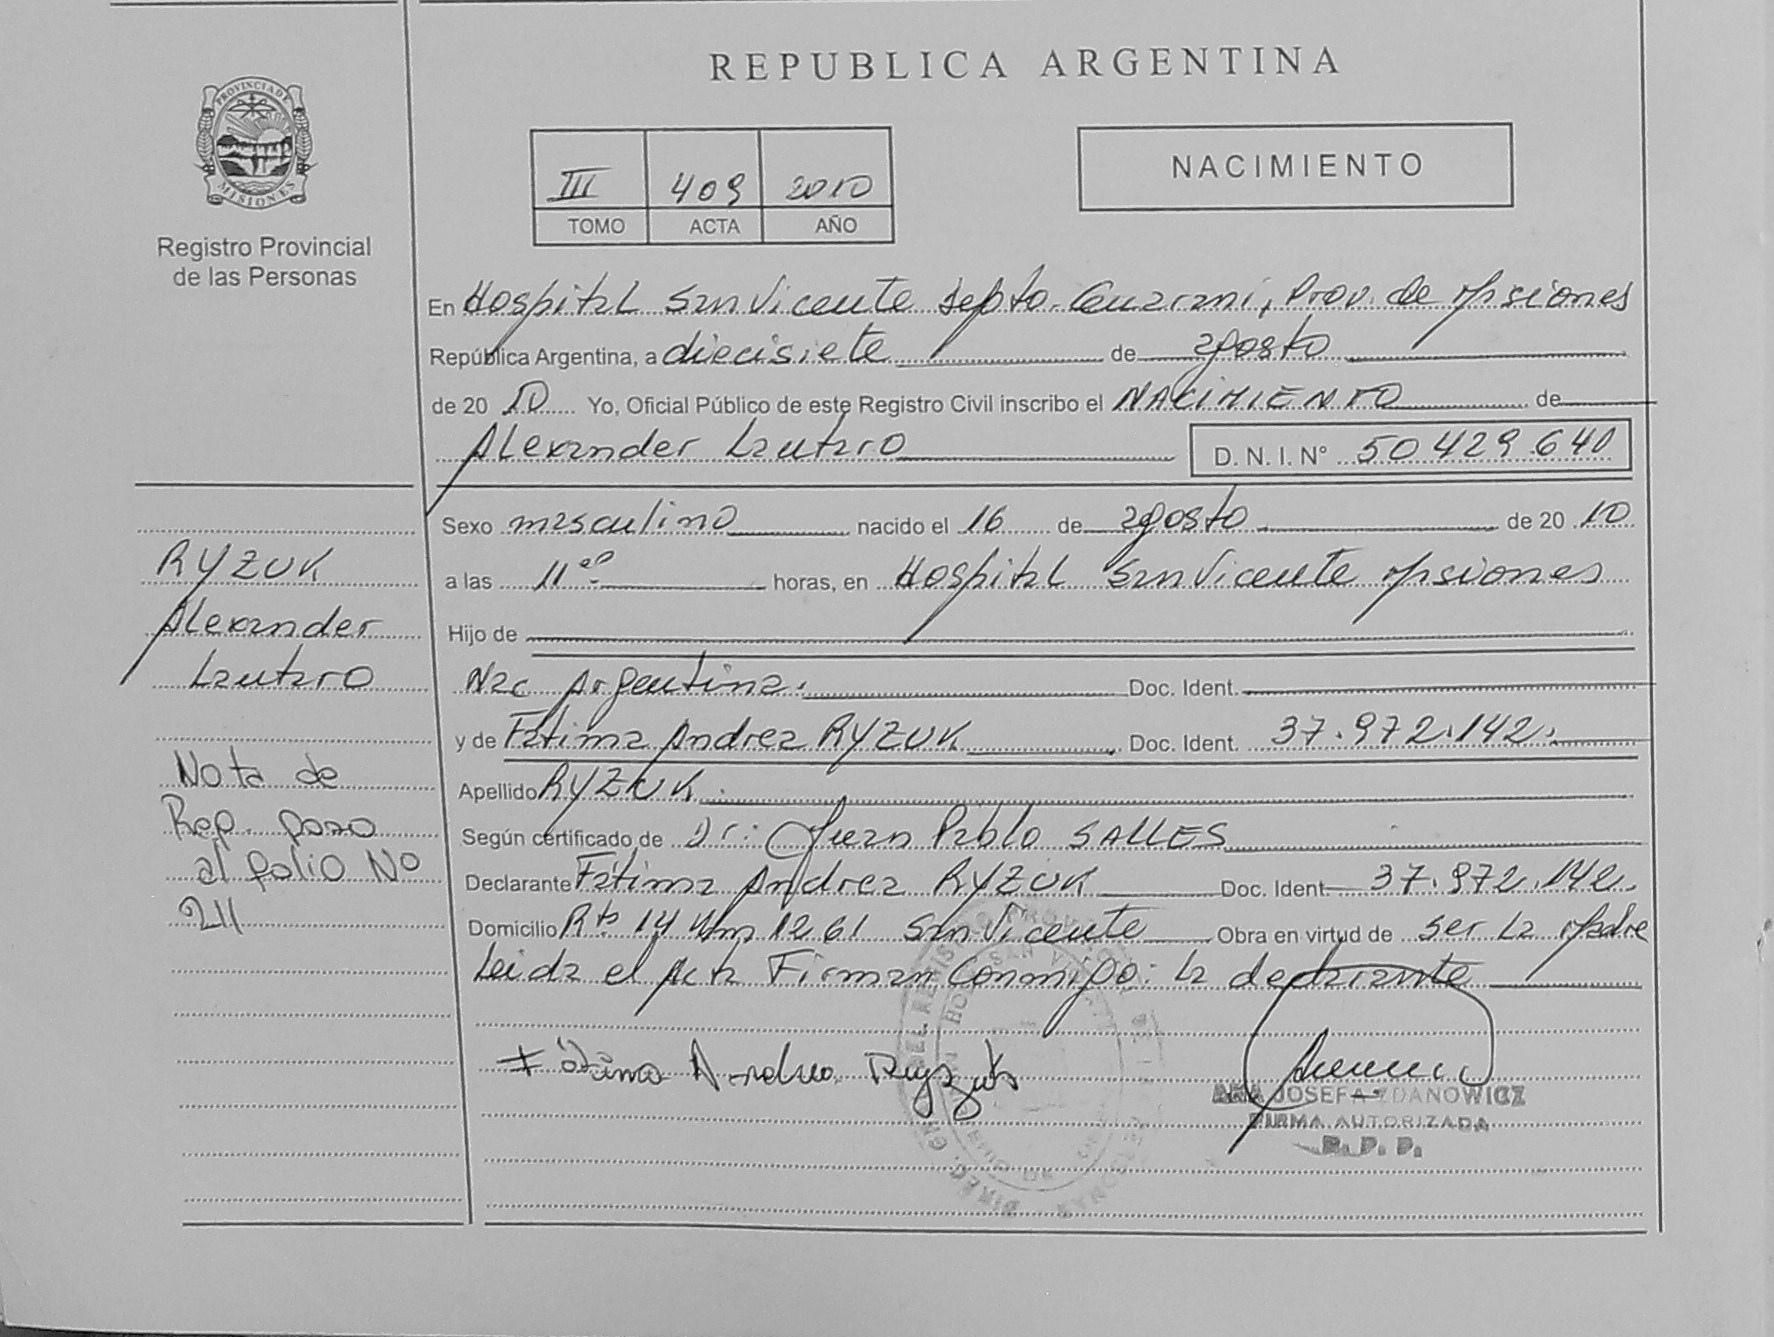 REPUBLICA ARGENTINA
PROVINCIA DE
MISIONES
Registro Provincial
de las Personas
III 409 2010
TOMO ACTA AÑO
NACIMIENTO
En Hospital San Vicente Depto. Guarani, Prov. de Misiones
República Argentina, a diecisiete de agosto
de 20 10 Yo, Oficial Público de este Registro Civil inscribo el NACIMIENTO de
Alexander Lautaro D. N. I. N° 50.429.640
Sexo masculino nacido el 16 de agosto de 20 10
a las 11 horas, en Hospital San Vicente Misiones
Hijo de
Nac Argentina. Doc. Ident.
y de Fatima Andrea RYZUK Doc. Ident. 37.972.142.
Apellido RYZUK.
Según certificado de Dr: Juan Pablo SALLES
Declarante Fatima Andrea RYZUK Doc. Ident. 37.972.142.
Domicilio Rta 14 Km 1261 San Vicente Obra en virtud de ser La Madre
Leida el Acta Firman Conmigo: La declarante
Fátima Andrea Ryzuk
ANA JOSEFA ZDANOWICZ
FIRMA AUTORIZADA
R. P. P.
RYZUK
Alexander
Lautaro
Nota de
Rep. paso
al folio No
211